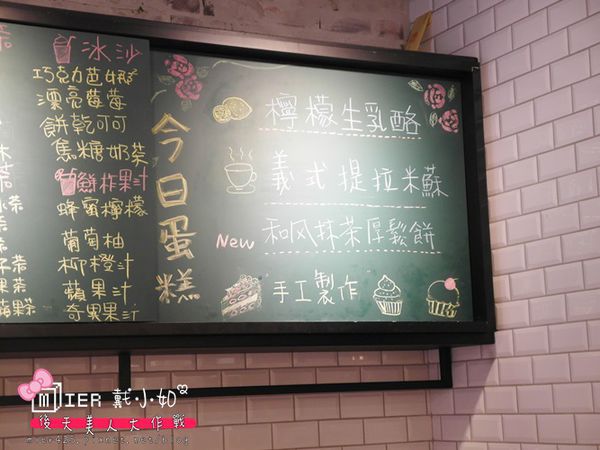 冰沙
巧克力芭蕾
漂亮莓莓
餅乾可可
焦糖奶茶
鮮柞果汁
蜂蜜檸檬
葡萄柚
柳橙汁
蘋果汁
奇異果汁
今日蛋糕
檸檬生乳酪
義式提拉米蘇
New 和风抹茶厚鬆餅
手工製作
mIER 戴小如
後天美人大作戰
mier425.pixnet.net/blog